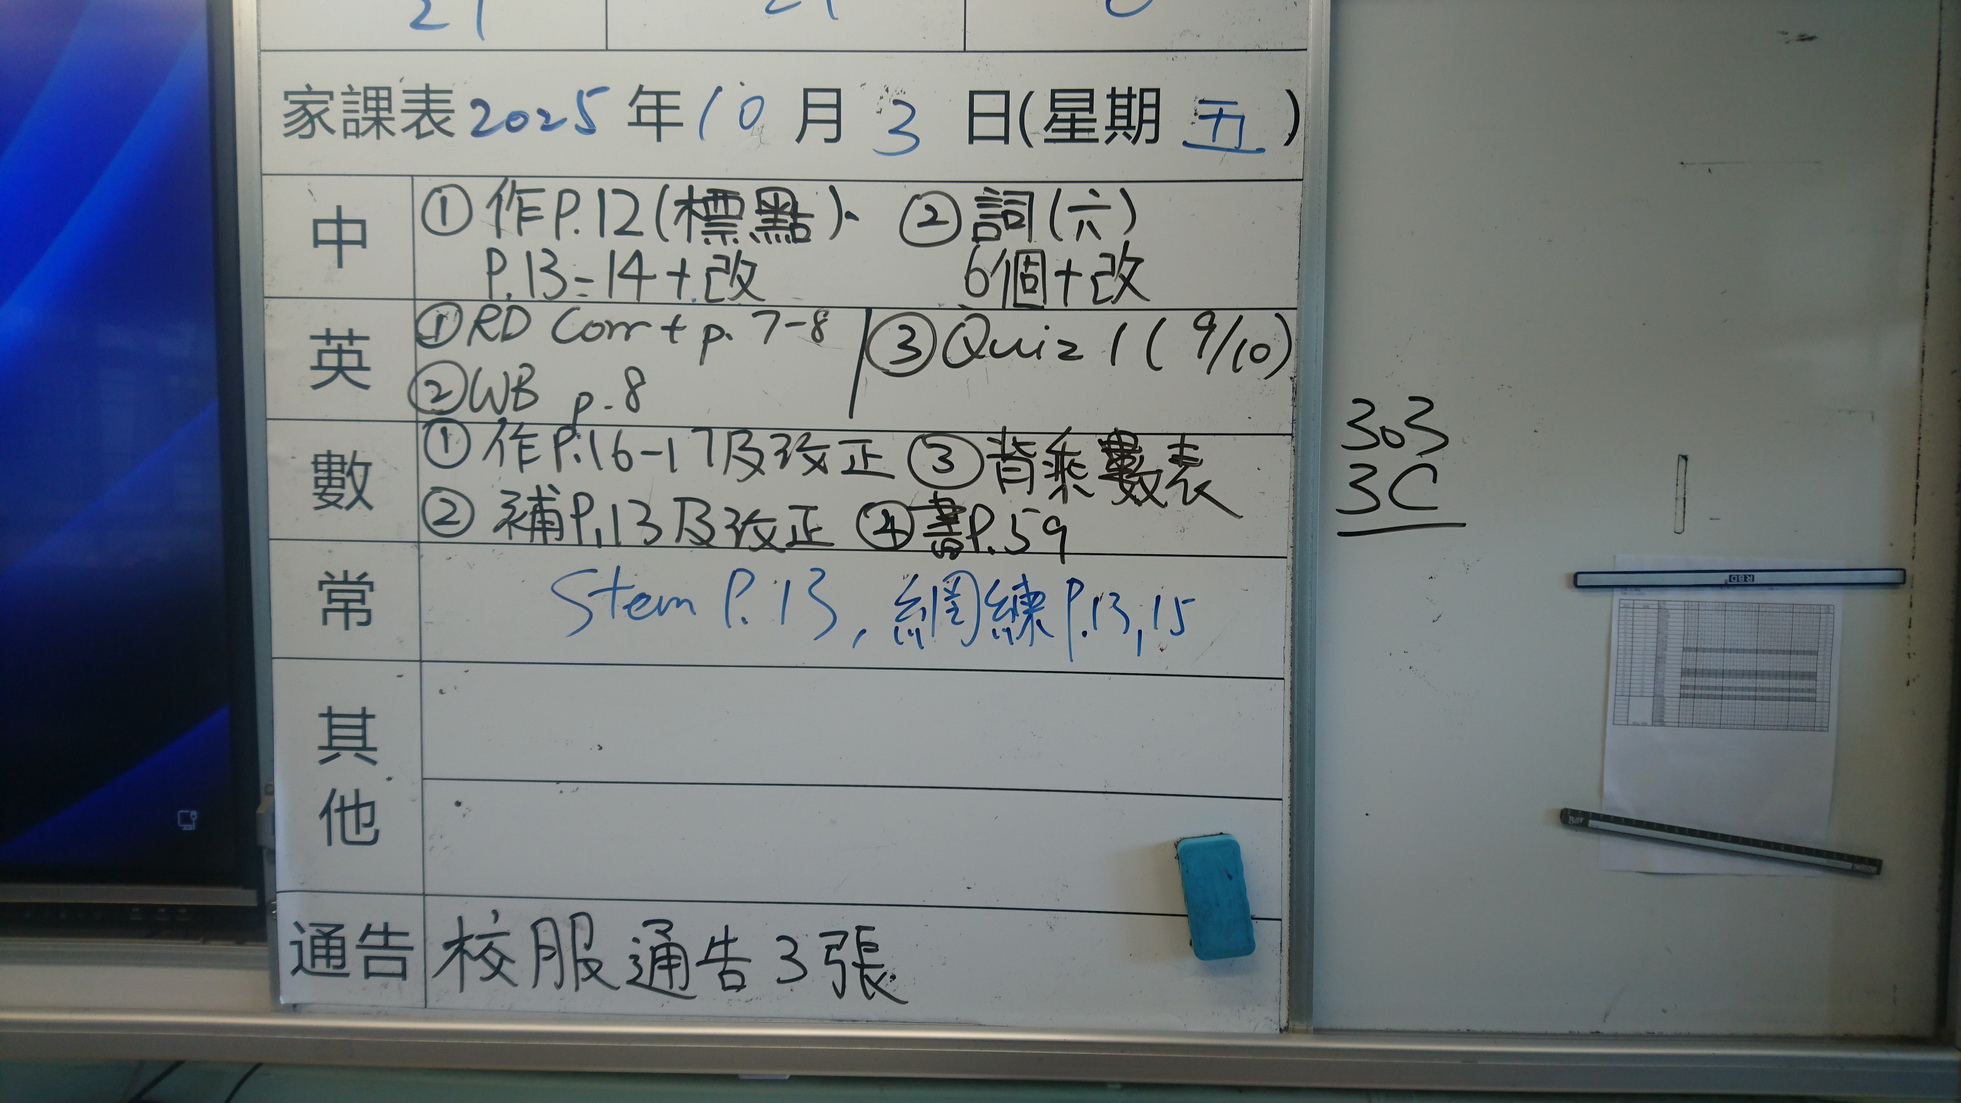 家課表2025年10月3日(星期五)
中
①作P.12(標點)、 ②詞(六)
P.13-14+改 6個+改
英
①RD Corr + p. 7-8 ③Quiz 1 (9/10)
②WB p.8
數
①作P.16-17及改正 ③背乘數表
②補P.13及改正 ④書P.59
常
Stem P.13, 網練P.13,15
其他
通告
校服通告3張
303
3C